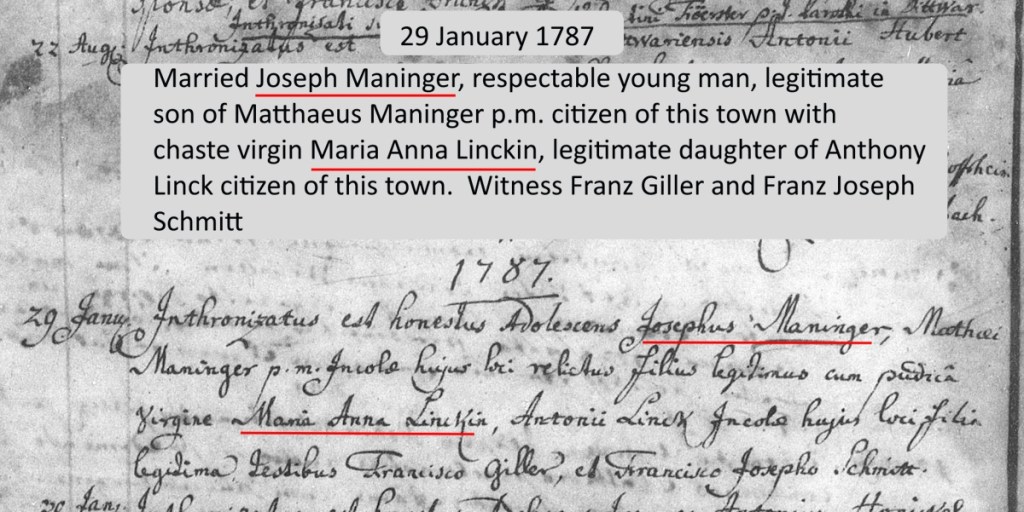 22 Aug. Inthronizatus est
wariensis Antonii Hubert
29 January 1787
Married Joseph Maninger, respectable young man, legitimate
son of Matthaeus Maninger p.m. citizen of this town with
chaste virgin Maria Anna Linckin, legitimate daughter of Anthony
Linck citizen of this town. Witness Franz Giller and Franz Joseph
Schmitt
1787.
29 Janu. Inthronizatus est honestus Adolescens Josephus Maninger, Mathaei
Maninger p.m. Incolae hujus loci relictus filius legitimus cum pudica
Virgine Maria Anna Linckin, Antonii Linck Incolae hujus loci filia
legidima, Testibus Francisco Giller, et Francisco Josepho Schmitt.